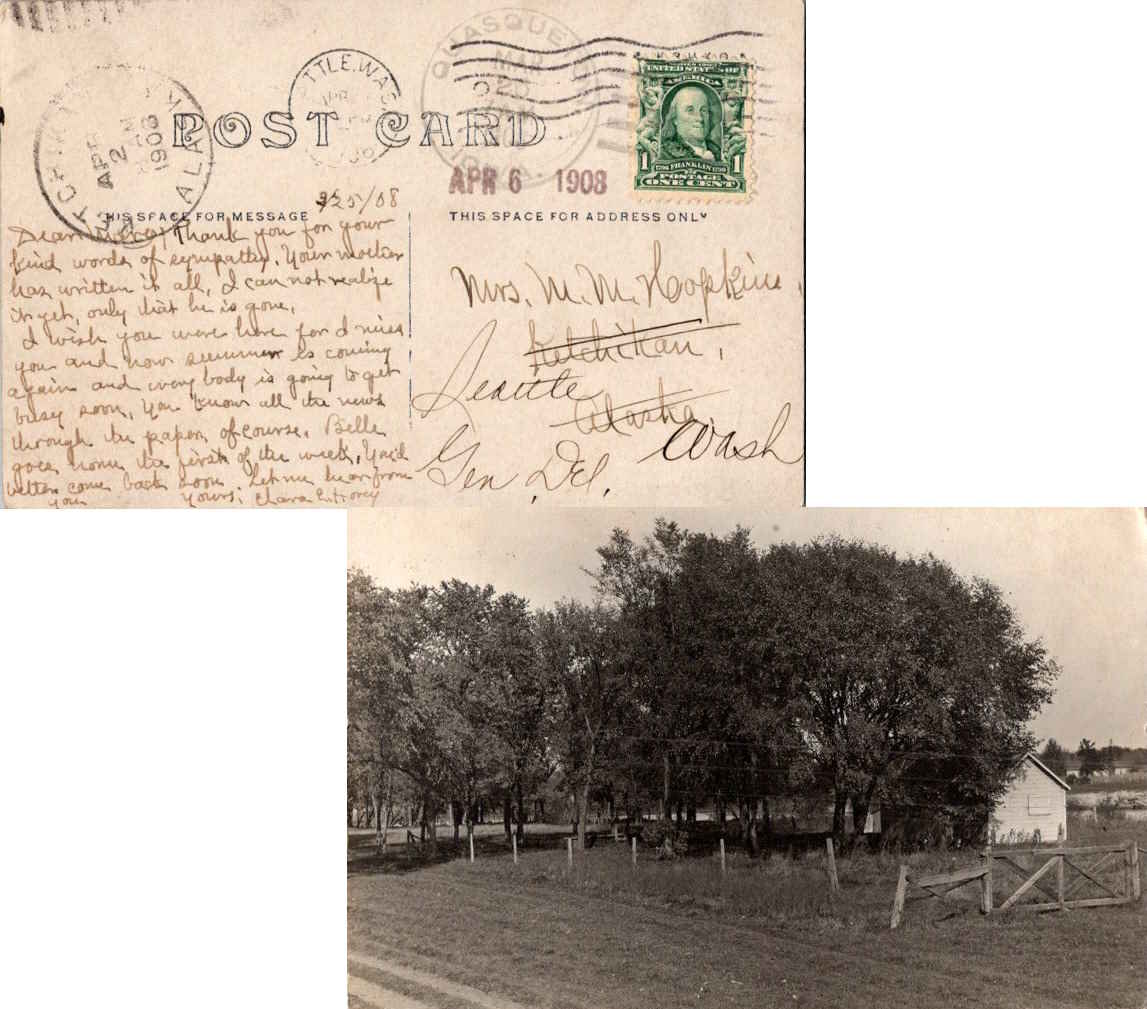 QUASQUETON
MAR
IOWA
TTLE, WAS
APR
KETCHIKAN
APR
2
M
1908
ALA
POST CARD
APR 6 1908
UNITED STATES OF
AMERICA
1 1
1706 FRANKLIN 1790
POSTAGE
ONE CENT
3/25/08
THIS SPACE FOR MESSAGE
THIS SPACE FOR ADDRESS ONLY
Dear Thank you for your
kind words of sympathy. Your mother
has written it all, I can not realize
it yet, only that he is gone.
I wish you were here for I miss
you and now summer is coming
again and every body is going to get
busy soon. You know all the news
through the paper, of course. Belle
goes home the first of the week. You'd
better come back soon. Let me hear from
you yours, Clara
Mrs. M. M. Hopkins,
Ketchikan,
Seattle
Alaska
Wash
Gen Del.